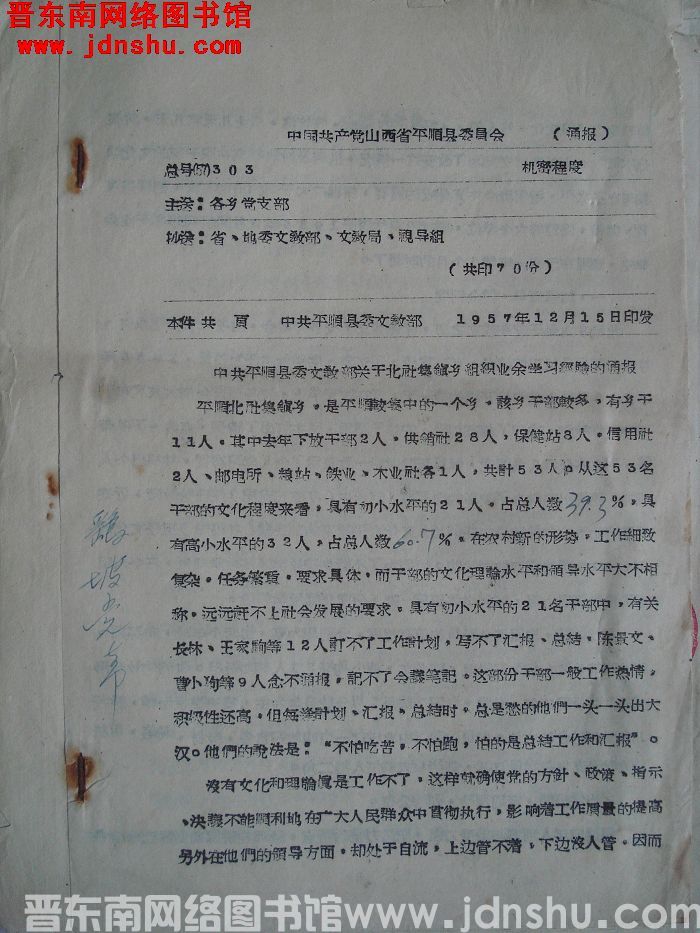 晋东南网络图书馆
www.jdnshu.com
中国共产党山西省平順县委員会 （通报）
总号(57)303 机密程度
主送：各乡党支部
抄送：省、地委文教部、文教局、視导组
（共印70份）
本件共 頁 中共平順县委文教部 1957年12月15日印发
中共平順县委文教部关于北社集鎮乡组织业余学习經驗的通报
平順北社集鎮乡。是平順較集中的一个乡。該乡干部較多，有乡干
11人。其中去年下放干部2人。供銷社28人，保健站8人。信用社
2人、邮电所、粮站、铁业、木业社各1人，共計53人。从这53名
干部的文化程度来看，具有初小水平的21人。占总人数39.3％，具
有高小水平的32人，占总人数60.7％。在农村新的形势。工作細致
复杂。任务繁重。要求具体。而干部的文化理論水平和領导水平大不相
称。远远赶不上社会发展的要求。具有初小水平的21名干部中，有关
长休、王家駒等12人訂不了工作計划，写不了汇报、总結。陈景文、
曹小狗等9人念不通报，記不了会議笔記。这部份干部一般工作热情，
积极性还高。但每逢計划、汇报、总結时。总是愁的他們一头一头出大
汉。他們的說法是：“不怕吃苦。不怕跑，怕的是总結工作和汇报”。
沒有文化和理論眞是工作不了。这样就确使党的方針、政策、指示
、决議不能順利地在广大人民群众中貫彻执行，影响着工作质量的提高
另外在他們的領导方面。却处于自流，上边管不着，下边沒人管。因而
晋东南网络图书馆 www.jdnshu.com